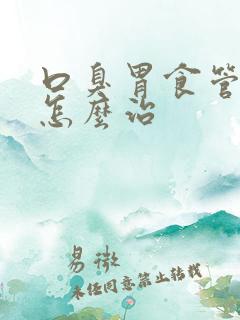 口臭胃食管
怎麼治
易微
未经同意禁止转载